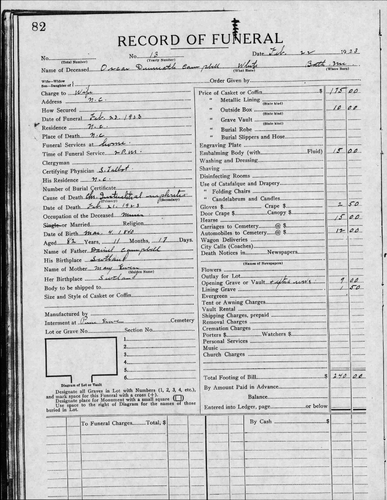 82
RECORD OF FUNERAL
No. No. 13 Date Feb. 22 1923
(Total Number) (Yearly Number)
Name of Deceased Oscar Campbell White
(What Name)
Wife—Widow
Son—Daughter of
Order Given by
Charge to Wife
Address N.C.
How Secured
Date of Funeral Feb. 22, 1923
Residence N.C.
Place of Death N.C.
Funeral Services at home
Time of Funeral Service 2 P.M.
Clergyman
Certifying Physician S. Talbot
His Residence N.C.
Number of Burial Certificate
Cause of Death
Date of Death Feb. 21, 1923
Occupation of the Deceased Miner
Single or Married Religion
Date of Birth Mar. 4, 1840
Aged 82 Years, 11 Months, 17 Days
Name of Father Daniel Campbell
His Birthplace Scotland
Name of Mother Mary
Her Birthplace Scotland
Body to be shipped to
Size and Style of Casket or Coffin
Manufactured by
Interment at Cemetery
Lot or Grave No. Section No.
1
2
3
4
5
6
Diagram of Lot or Vault
Designate all Graves in Lot with Numbers (1, 2, 3, 4, etc.),
and mark space for this Funeral with a cross (+).
Designate place for Monument with a small square
Use space to the right of Diagram for the names of those
buried in Lot.
Price of Casket or Coffin $ 175 00
" Metallic Lining
(State Kind)
" Outside Box 10 00
(State Kind)
" Grave Vault
(State Kind)
" Burial Robe
" Burial Slippers and Hose
Engraving Plate
Embalming Body (with Fluid) 15 00
Washing and Dressing
Shaving
Disinfecting Rooms
Use of Catafalque and Drapery
" Folding Chairs
" Candelabrum and Candles
Gloves $ Crape $ 2 50
Door Crape $ Canopy $
Hearse 15 00
Carriages to Cemetery @ $
Automobiles to Cemetery @ $ 12 00
Wagon Deliveries
City Calls (Coaches)
Death Notices in Newspapers
(Names of Newspapers)
Flowers
Outlay for Lot
Opening Grave or Vault 9 00
Lining Grave 1 50
Evergreen
Tent or Awning Charges
Vault Rental
Shipping Charges, prepaid
Removal Charges
Cremation Charges
Porters $ Watchers $
Personal Services
Music
Church Charges
Total Footing of Bill $ 240 00
By Amount Paid in Advance
Balance
Entered into Ledger, page or below
To Funeral Charges, Total $ By Cash $